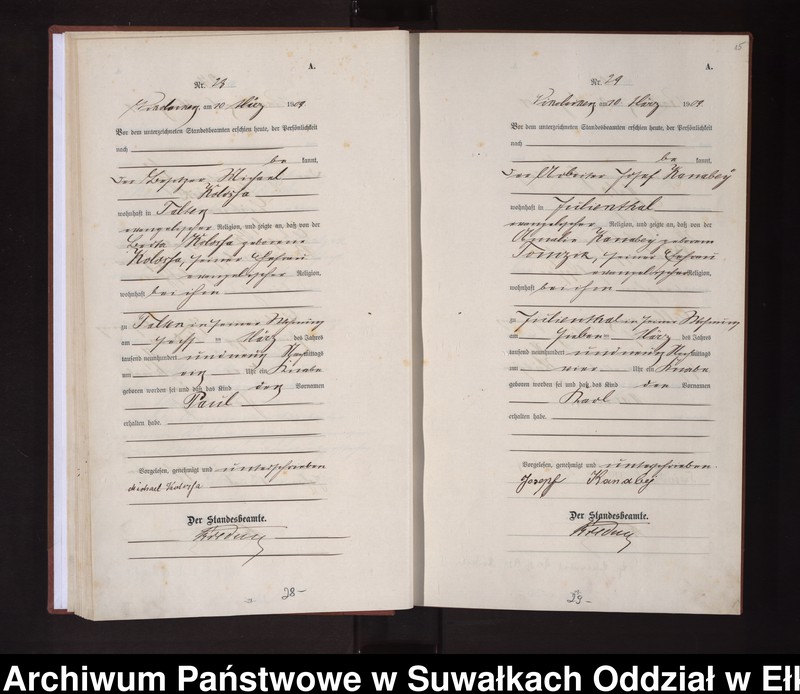 A.
Nr. 23
am 10 März 1909
Vor dem unterzeichneten Standesbeamten erschien heute, der Persönlichkeit
nach
be kannt,
Der Besitzer Michael
Kolossa
wohnhaft in Talken
evangelischer Religion, und zeigte an, daß von der
Kolossa geborene
Kolossa, seiner Ehefrau
evangelischer Religion,
wohnhaft bei ihm
zu Talken in seiner Wohnung
am März des Jahres
tausend neunhundert und neun
um Uhr ein Knabe
geboren worden sei und daß das Kind den Vornamen
Paul
erhalten habe.
Vorgelesen, genehmigt und unterschrieben
Michael Kolossa
Der Standesbeamte.
28-
65
A.
Nr. 29
am 10 März 1909
Vor dem unterzeichneten Standesbeamten erschien heute, der Persönlichkeit
nach
be kannt,
Der Arbeiter Josef Kanabey
wohnhaft in Julienthal
evangelischer Religion, und zeigte an, daß von der
Amalie Kanabey geborene
seiner Ehefrau
evangelischer Religion,
wohnhaft bei ihm
zu Julienthal in seiner Wohnung
am sieben März des Jahres
tausend neunhundert und neun
um vier Uhr ein Knabe
geboren worden sei und daß das Kind den Vornamen
Karl
erhalten habe.
Vorgelesen, genehmigt und unterschrieben.
Joseph Kanabey
Der Standesbeamte.
29-
Archiwum Państwowe w Suwałkach Oddział w Ełk